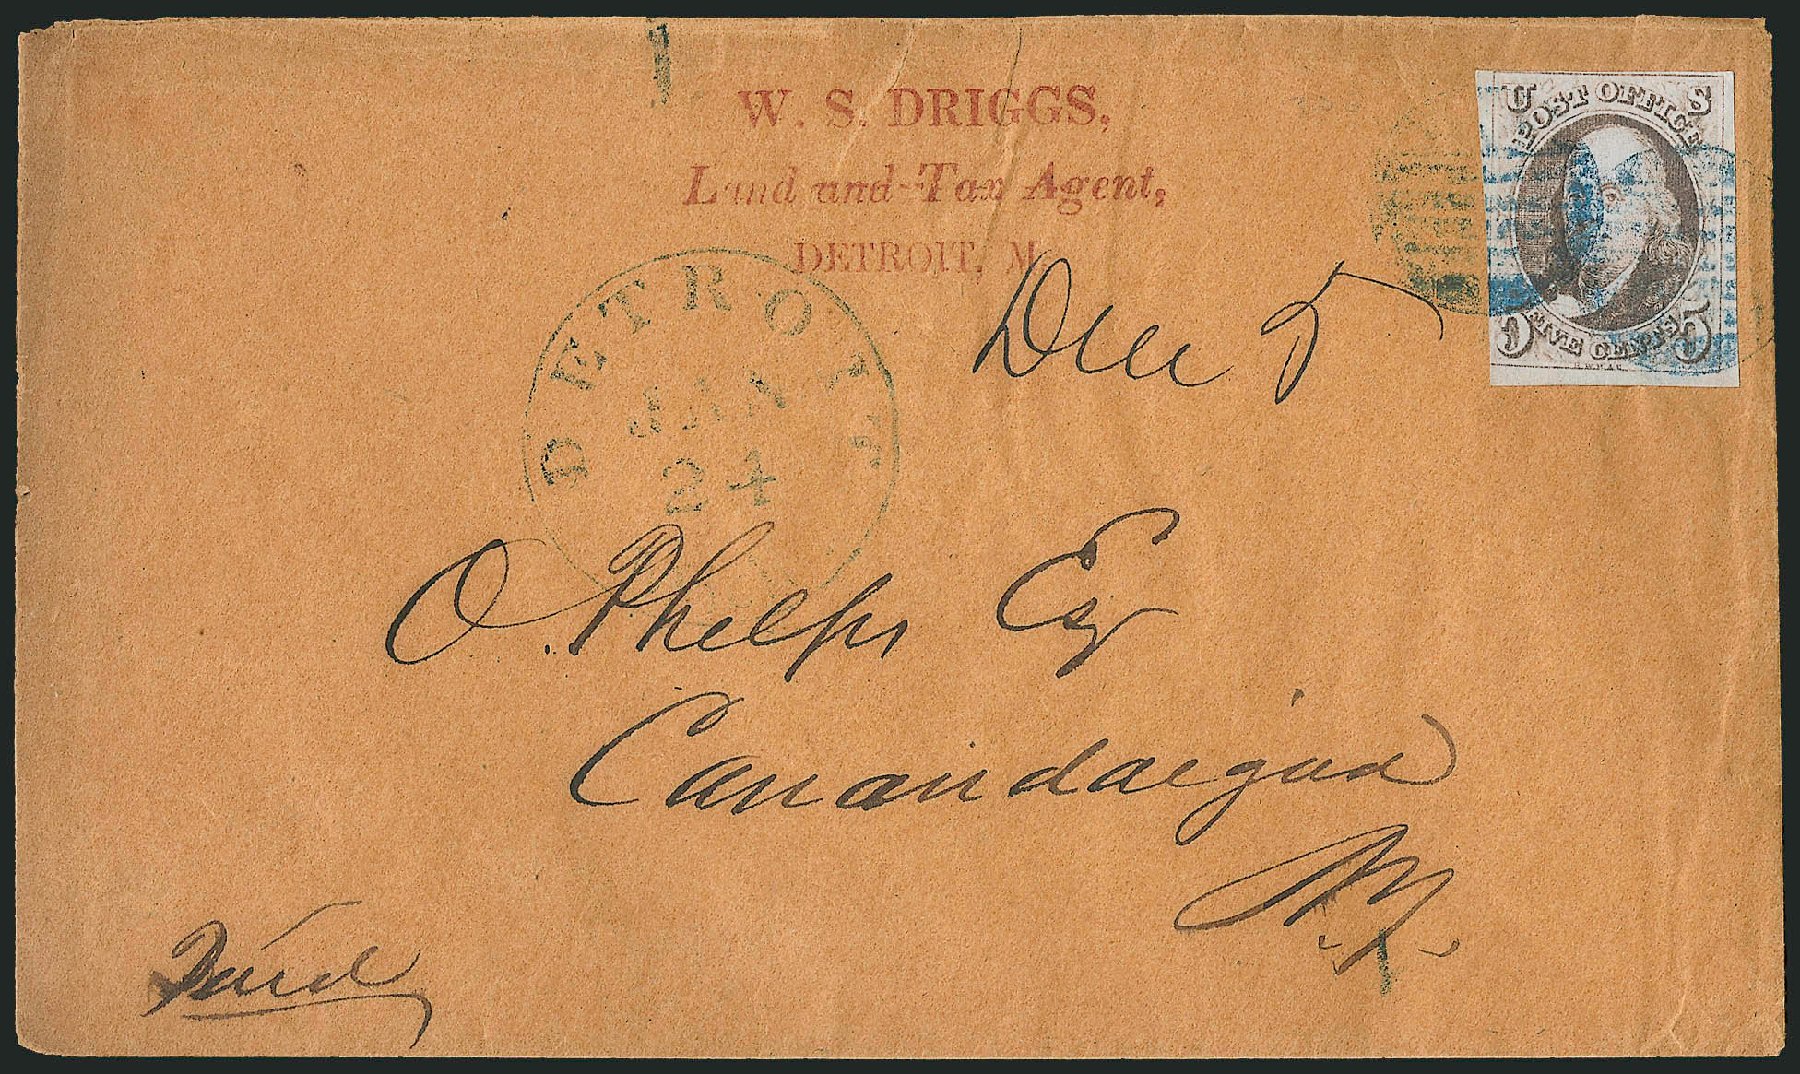 W. S. DRIGGS,
Land and Tax Agent,
DETROIT, M.
U S
POST OFFICE
FIVE CENTS
5 5
Due 5
DETROIT
JAN
24
O. Phelps Esq
Canandaigua
N.Y.
Paid